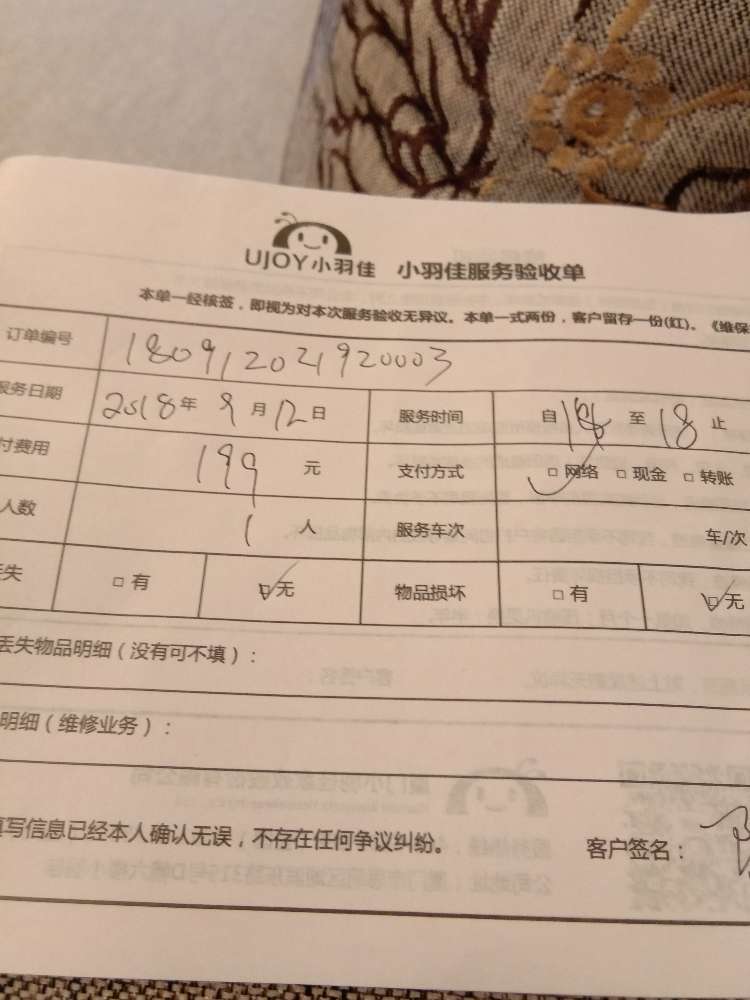 UJOY小羽佳 小羽佳服务验收单
本单一经核签，即视为对本次服务验收无异议。本单一式两份，客户留存一份(红)。《维保
订单编号 180912021920003
服务日期 2018年9月12日 服务时间 自 至18止
付费用 199元 支付方式 □网络 □现金 □转账
人数 1人 服务车次 车/次
丢失 □有 □无 物品损坏 □有 □无
丢失物品明细（没有可不填）：
明细（维修业务）：
填写信息已经本人确认无误，不存在任何争议纠纷。 客户签名：